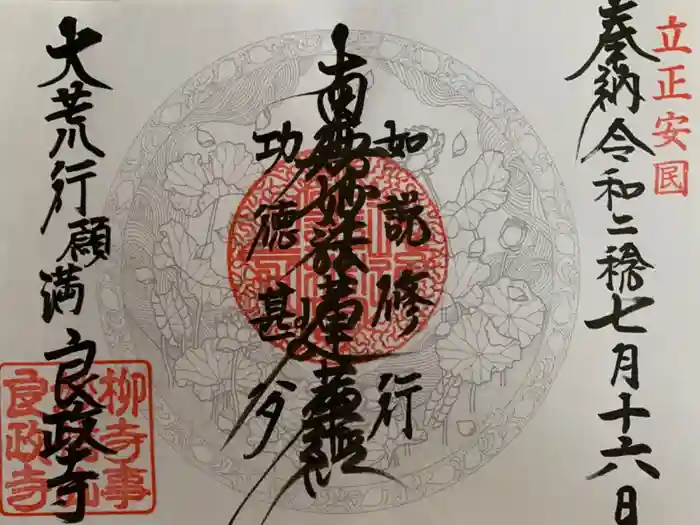 立正安民
奉納 令和二稔七月十六日
如説修行
南無妙法蓮華経
功徳甚多
大荒行願満 良政寺
柳寺事
良政寺